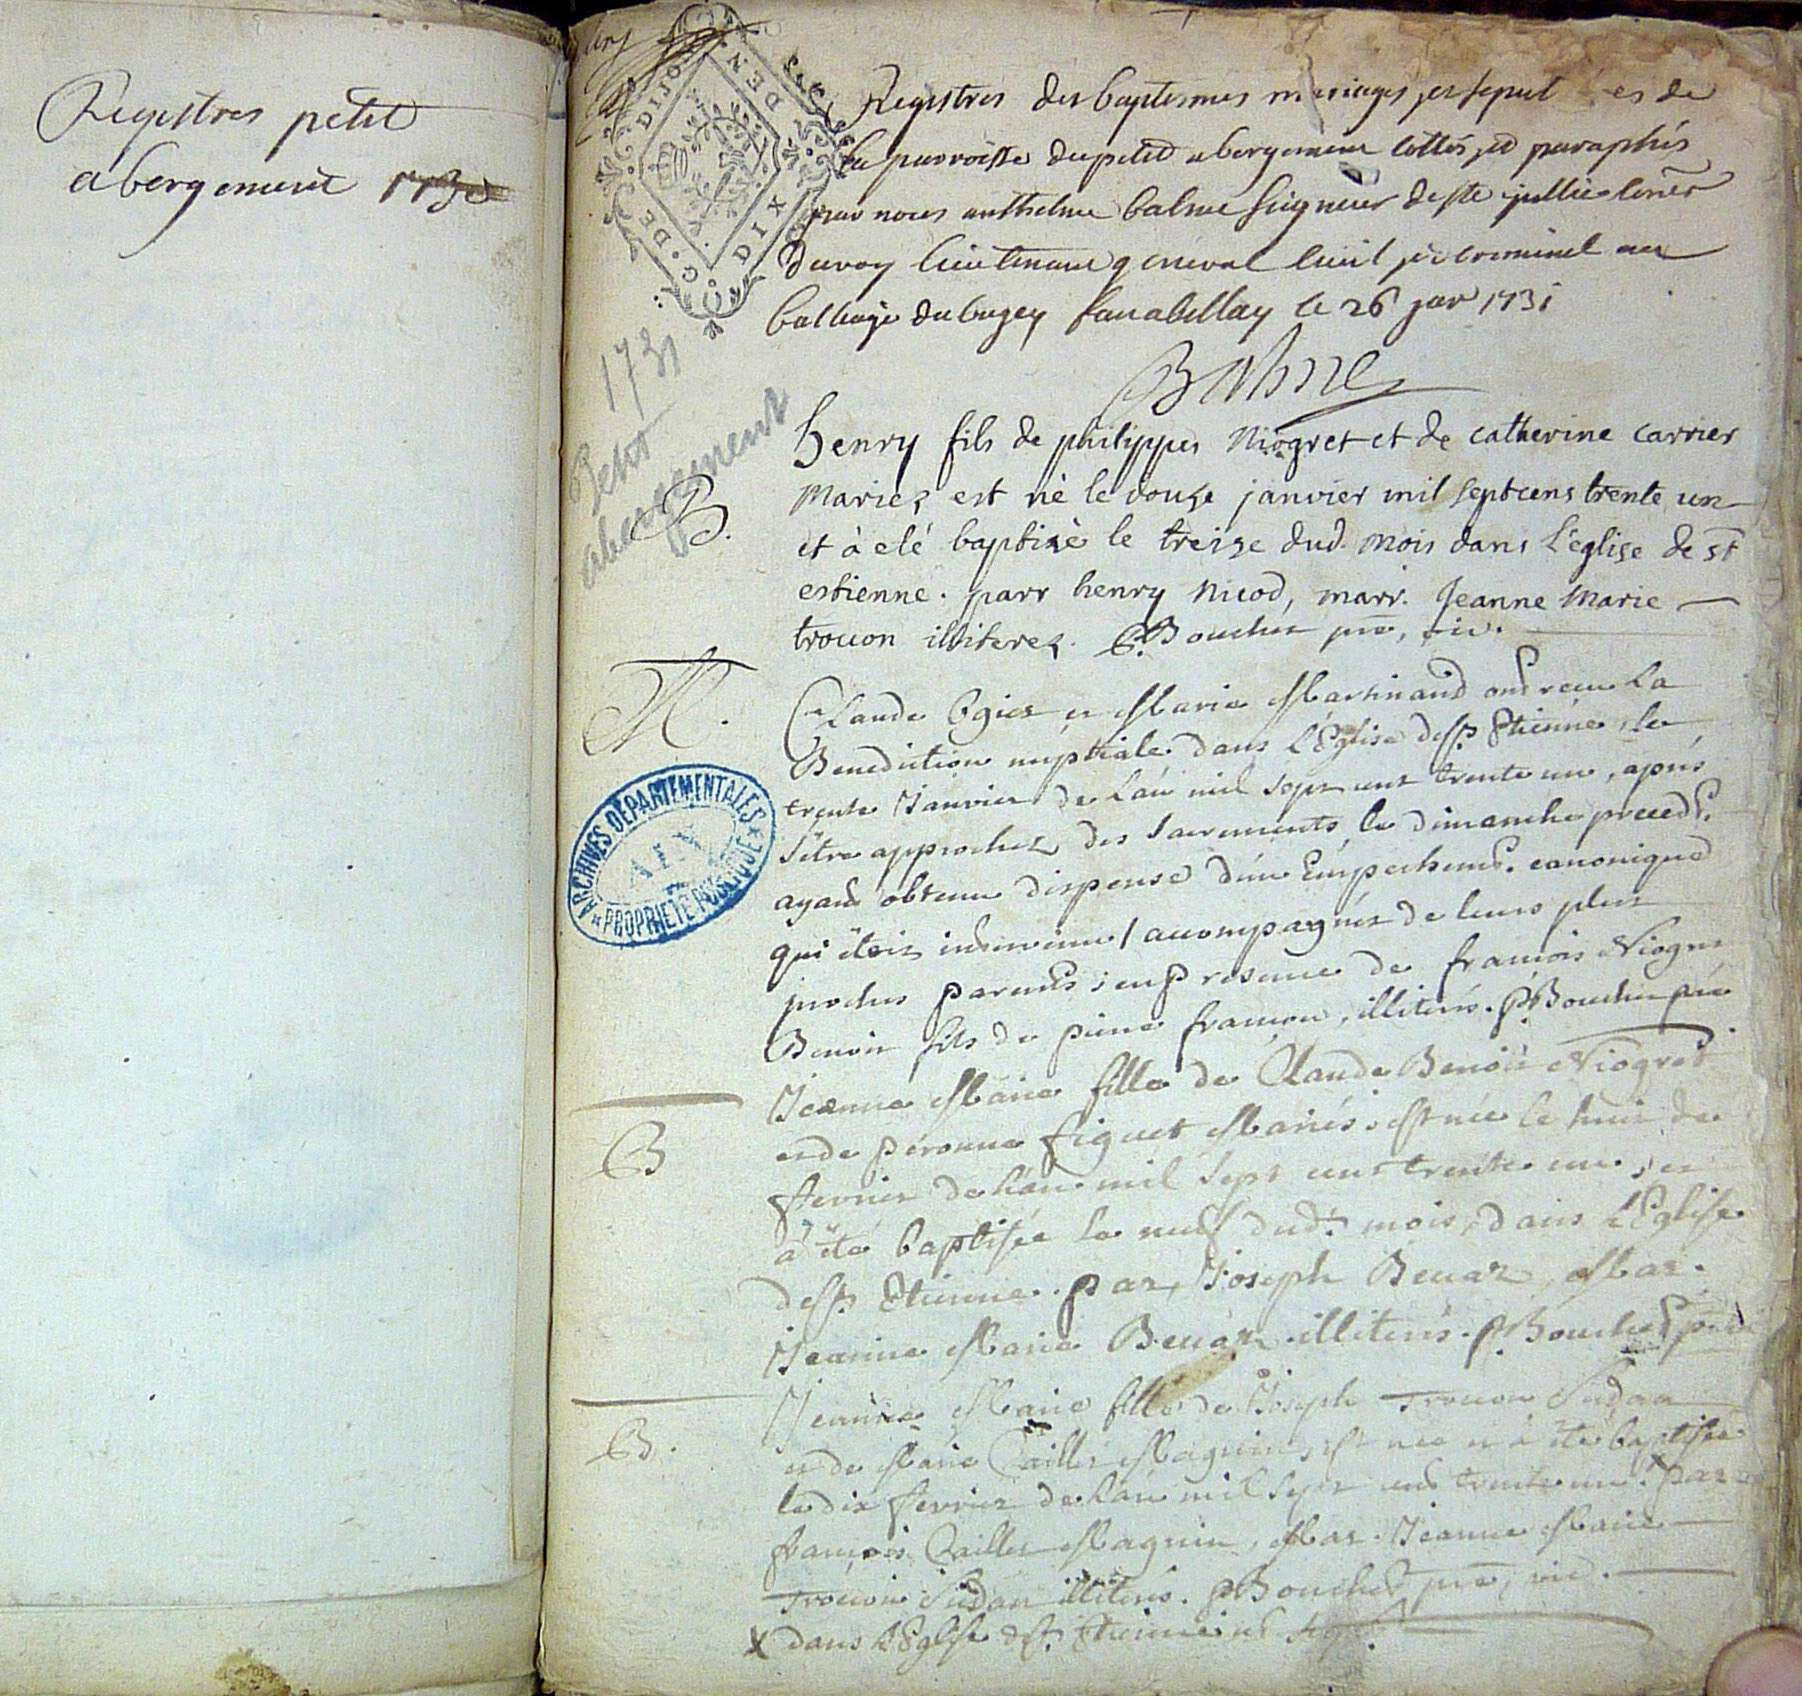 Registres petit
abergement 1730
G. DE DIJON
DIX DEN
Registres des baptesmes mariages et sepul es de
la parroisse du petit abergement cottés et paraphés
par nous anthelme balme seigneur de ste jullie coner
du roy lieutenant general civil et criminel au
balliage du bugey fait a bellay le 26 janr 1731
Balme
1731
Petit
abergement
B.
henry fils de philippes Niogret et de catherine carrier
Mariez est né le douze janvier mil septcens trente un
et à eté baptizé le treize dud. mois dans l'églize de St
estienne. parr henry Nicod, marr. Jeanne Marie
trocon illiterez. P. Bouchet pre, vic.
M.
Claude Ogier et Marie Martinand ont receu La
Benediction nuptiale dans l'Eglise de St Etienne, le
trente Janvier de L'an mil sept cent trente un, après
s'être approchez des sacrements le dimanche precedt.
ayant obtenu dispense d'un Empechemt. canonique
qui étoit intervenu, accompagnés de leurs plus
proches parents; en presence de francois Niogret
Benoit fils de pierre francon, illiterés. P. Bouchet pre
B
Jeanne Marie fille de Claude Benoit Niogret
et de peronne figuet Mariés, est née le huit de
fevrier de L'an mil sept cent trente un, et
à été baptisée le neuf dudt. mois, dans L'Eglise
de St Etienne. par. Joseph Beuaz, Mar.
Jeanne Marie Beuaz illiterés. P. Bouchet pre
B.
Jeanne Marie fille de Joseph Trocon Sudan
et de Marie Cailler Magnin, est née et à été baptisée
le dix fevrier de L'an mil sept cent trente un. x par
françois Cailler Magnin, Mar. Jeanne Marie
Trocon Sudan illiterés. P. Bouchet pre, vic.
x dans L'Eglise de St. Etienne
ARCHIVES DÉPARTEMENTALES
AIN
PROPRIÉTÉ PUBLIQUE